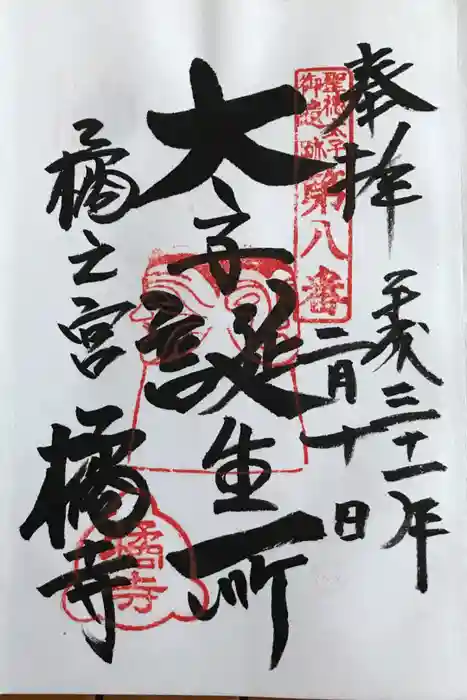 奉拝
平成三十一年
二月十日
聖徳太子
御遺跡第八番
太子誕生所
橘之宮
橘寺
橘寺